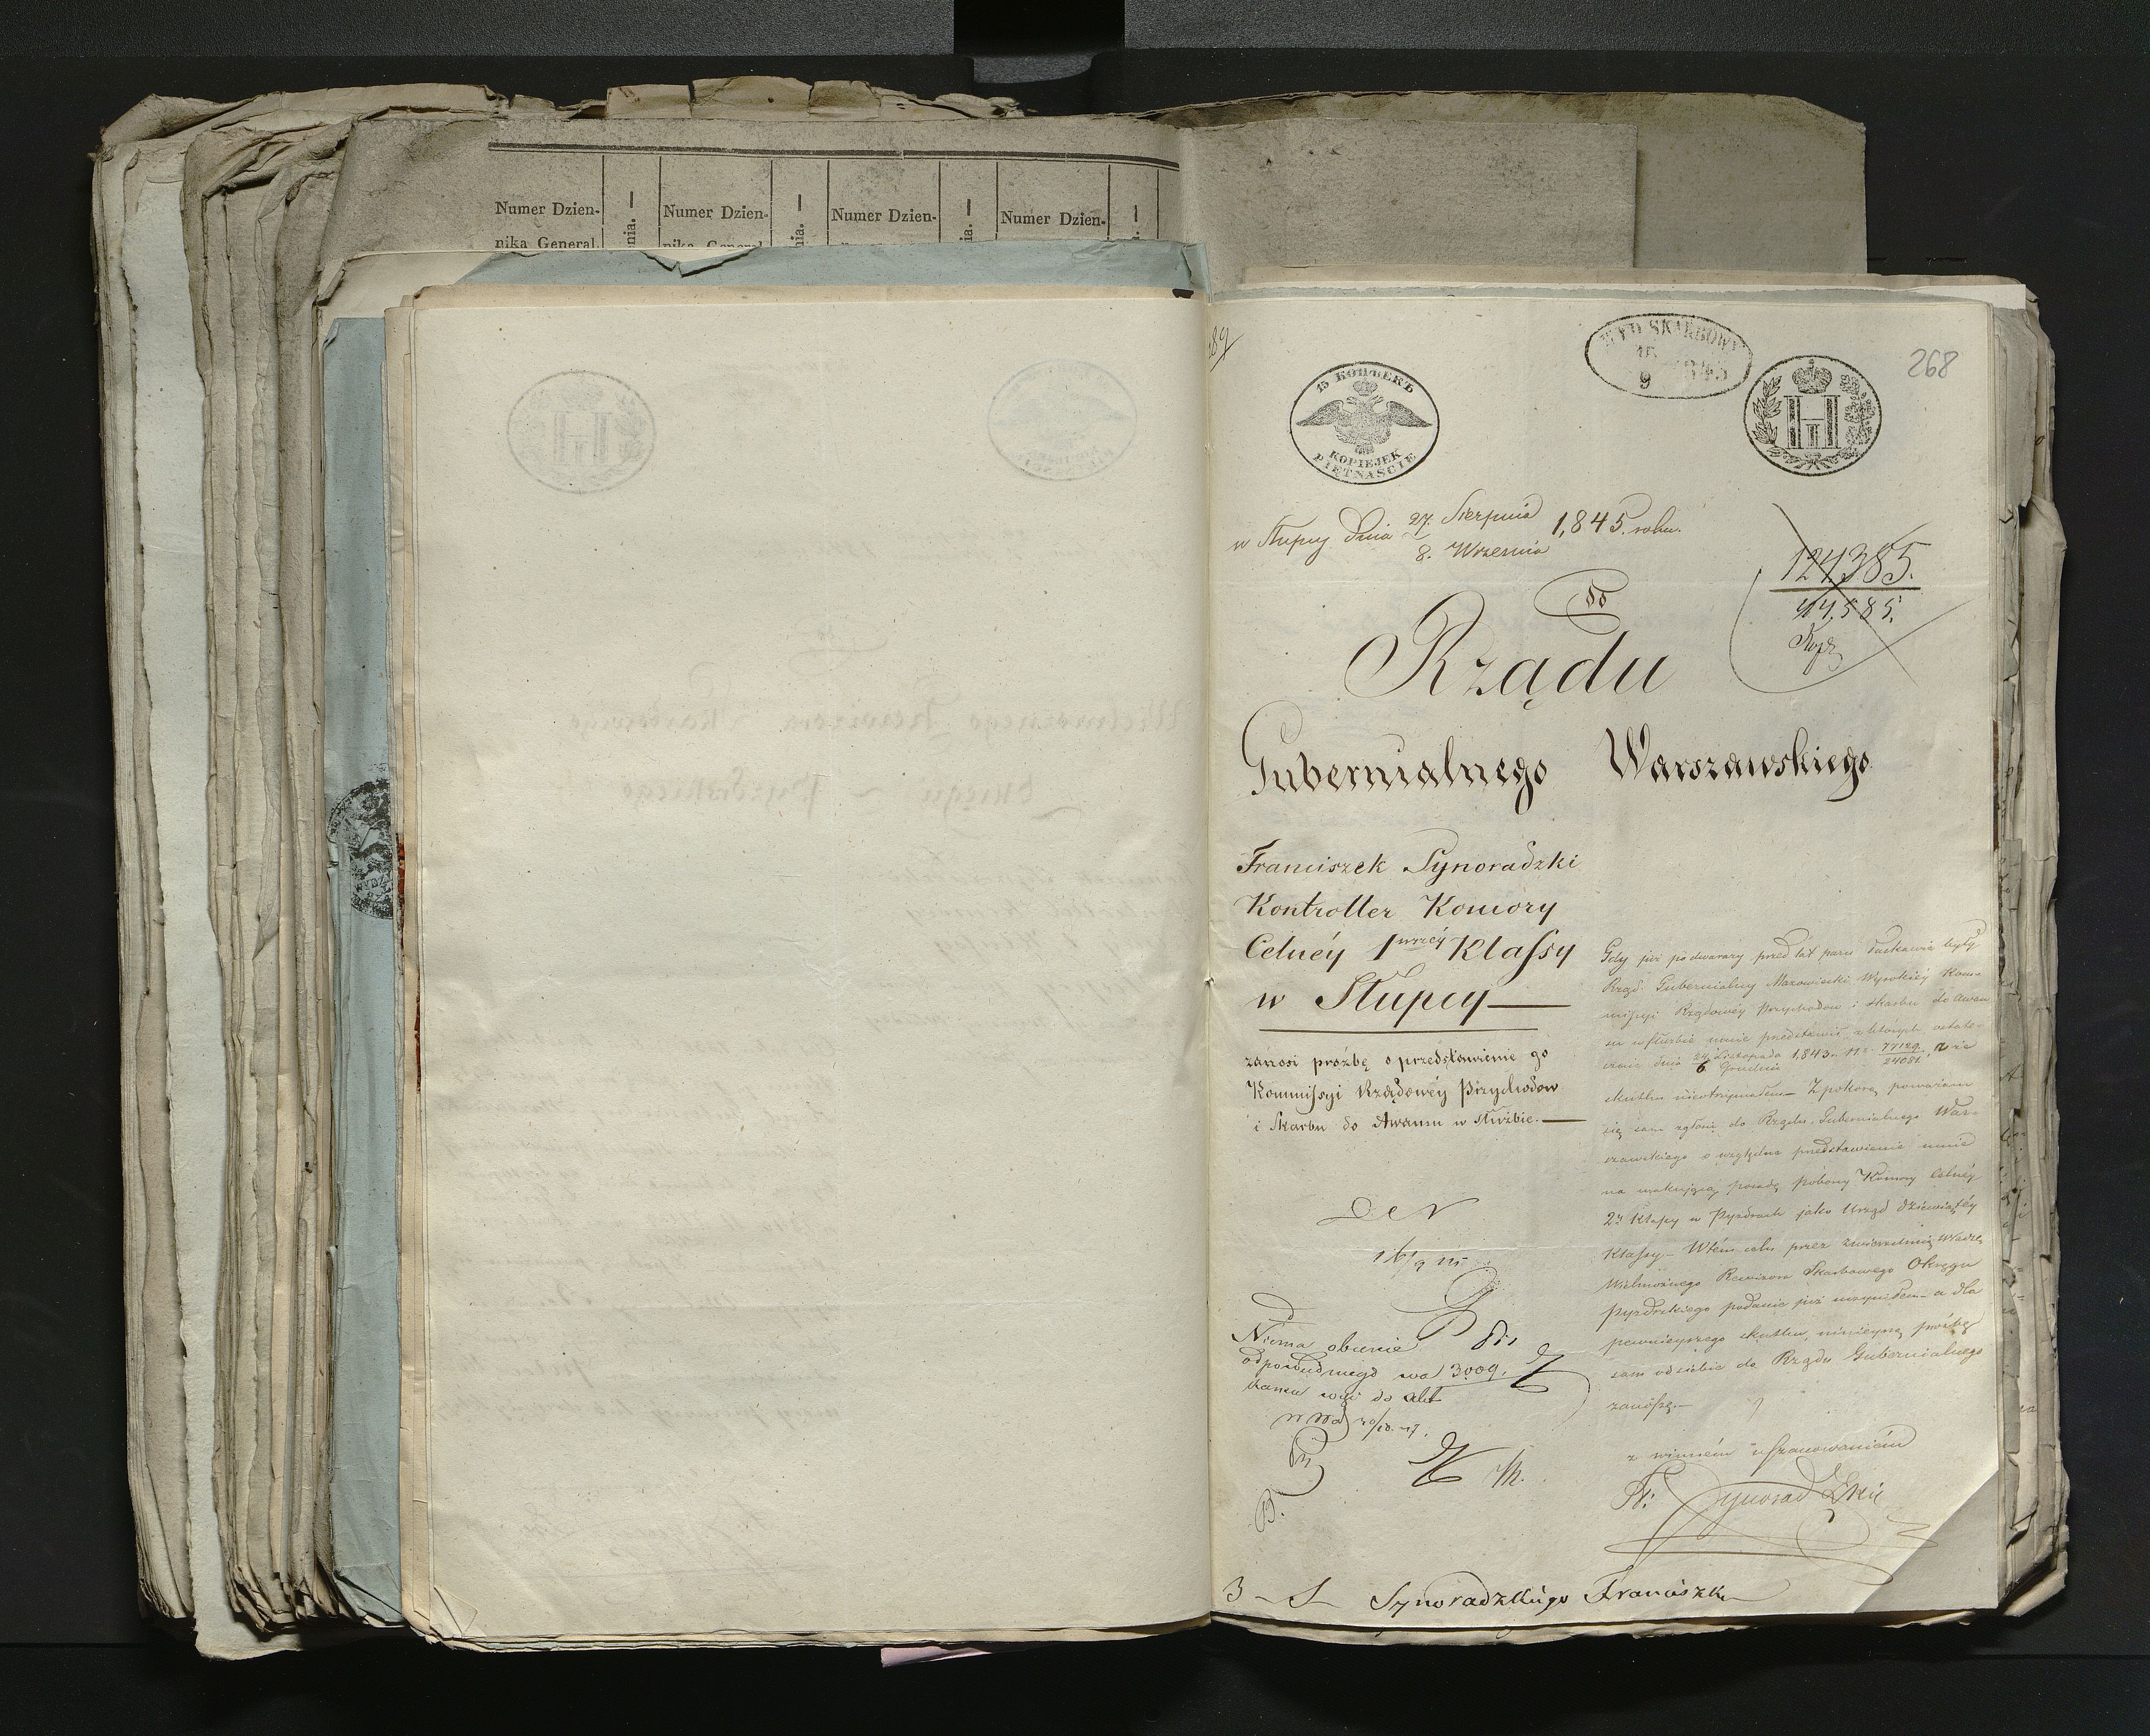 Numer Dzien-
nika General.
nia.
Numer Dzien-
nika General
nia.
Numer Dzien-
ia.
Numer Dzien-
89
WYD SKARBOWY
9 1845
268
15 КОПѢЕКЪ
KOPIEJEK
PIĘTNAŚCIE
Н I
w Słupcy dnia 27. Sierpnia 1,845. roku.
8. Września
124385.
44,585.
do
Rządu
Gubernialnego Warszawskiego
Franciszek Synoradzki
Kontroller Komory
Celnéy 1wszéy Klassy
w Słupcy
zanosi prożbę o przedstawienie go
Kommissyi Rządowéy Przychodow
i Skarbu do Awansu w Służbie.
Gdy już podwarazy przed lat paru łaskawie były
Rząd Gubernialny Mazowiecki Wysokiéy Kom-
missyi Rządowéy Przychodow i Skarbu do awan
su w służbie mnie przedstawić, z których ostate-
cznie dnia 24 Listopada 1,843 r. N. 77129
6 Grudnia 24081
skutku nieotrzymałem- Z pokorą poważam
się sam zgłosić do Rządu Gubernialnego War-
szawskiego o względne przedstawienie mnie
na wakującą posadę Poborcy Komory Celnéy
2éj Klassy w Pyzdrach jako Urząd dziewiątéy
Klassy- W tém celu przez zwierzchnią władzę
Wielmożnego Rewizora Skarbowego Okręgu
Pyzdrskiego podanie już uczyniłem- a dla
pewnieyszego skutku, ninieyszą prożbę
sam od siebie do Rządu Gubernialnego
zanoszę.-
z winném uszanowaniém
Fr: Synoradzki
16/9
Niema obecnie
odpowiedniego wa 3009.
kansu więc do akt
30/10.
3 - S - Synoradzkiego Franciszka